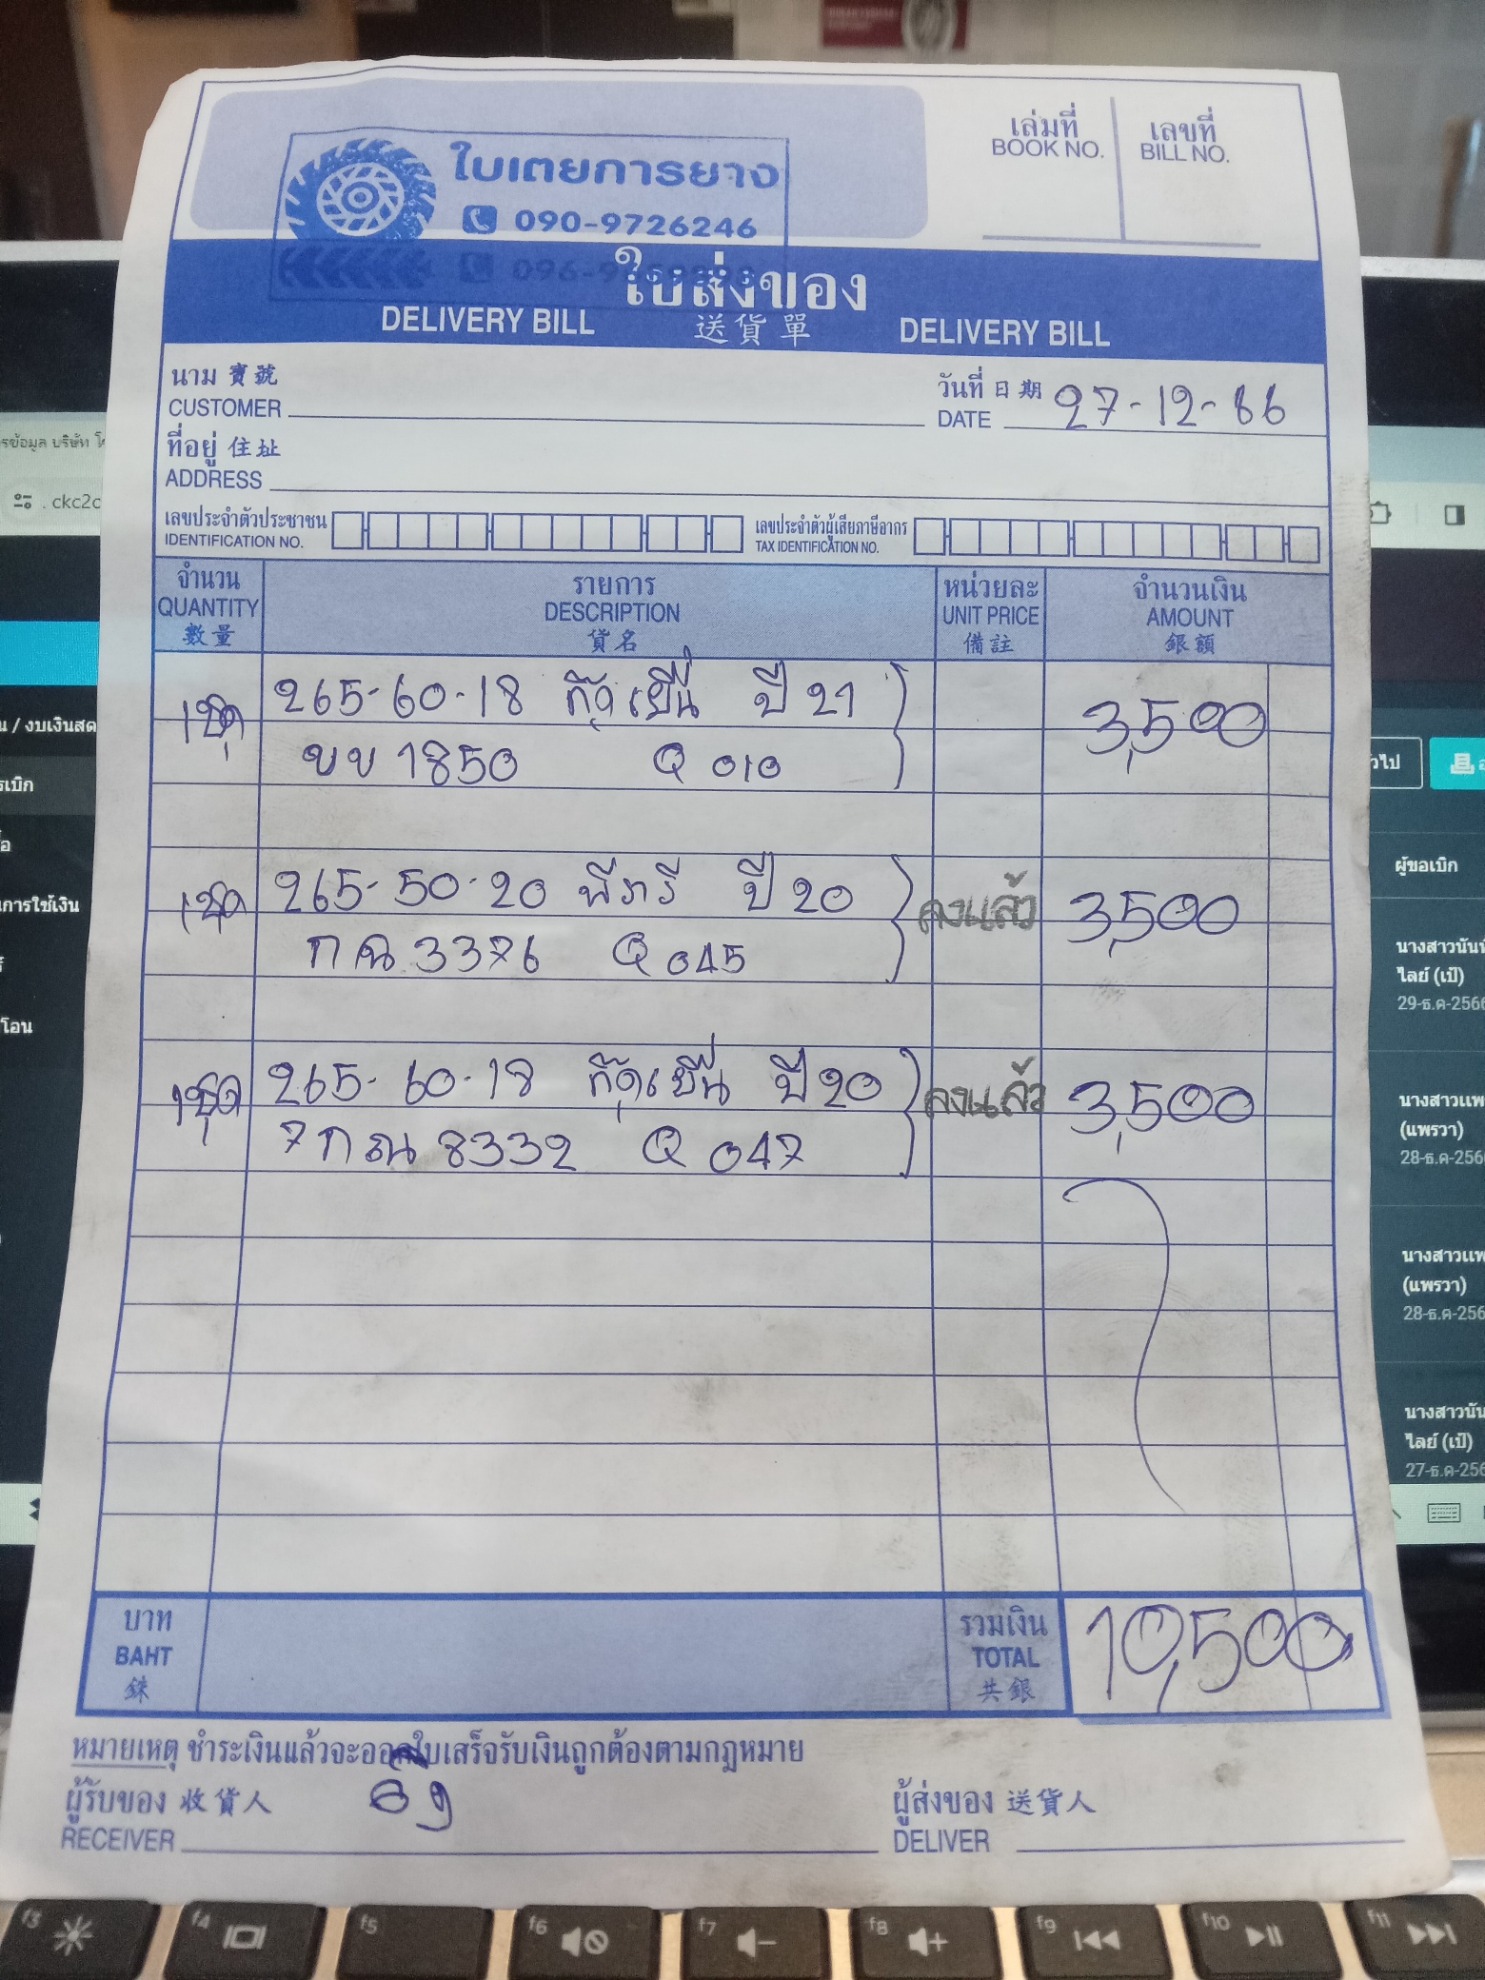 ใบเตยการยาง
090-9726246
เล่มที่ เลขที่
BOOK NO. BILL NO.
ใบส่งของ
DELIVERY BILL 送貨單 DELIVERY BILL
นาม 寶號 วันที่ 日期 27-12-66
CUSTOMER DATE
ที่อยู่ 住址
ADDRESS
เลขประจำตัวประชาชน เลขประจำตัวผู้เสียภาษีอากร
IDENTIFICATION NO. TAX IDENTIFICATION NO.
จำนวน รายการ หน่วยละ จำนวนเงิน
QUANTITY DESCRIPTION UNIT PRICE AMOUNT
數量 貨名 備註 銀額
1ชุด 265-60-18 กู๊ดเยียื่น ปี 21 3,500
ขข 1850 Q 010
1ชุด 265-50-20 พีรารี ปี 20 ลงแล้ว 3,500
3376 Q 045
1ชุด 265-60-18 ปี 20 ลงแล้ว 3,500
7กณ 8332 Q 047
บาท รวมเงิน
BAHT TOTAL 10,500
銖 共銀
หมายเหตุ ชำระเงินแล้วจะออกใบเสร็จรับเงินถูกต้องตามกฎหมาย
ผู้รับของ 收貨人 ผู้ส่งของ 送貨人
RECEIVER DELIVER
ผู้ขอเบิก
29-ธ.ค-256
28-ธ.ค-256
(แพรวา)
28-ธ.ค-256
27-ธ.ค-256
f3 f4 f5 f6 f7 f8 f9 f10 f11